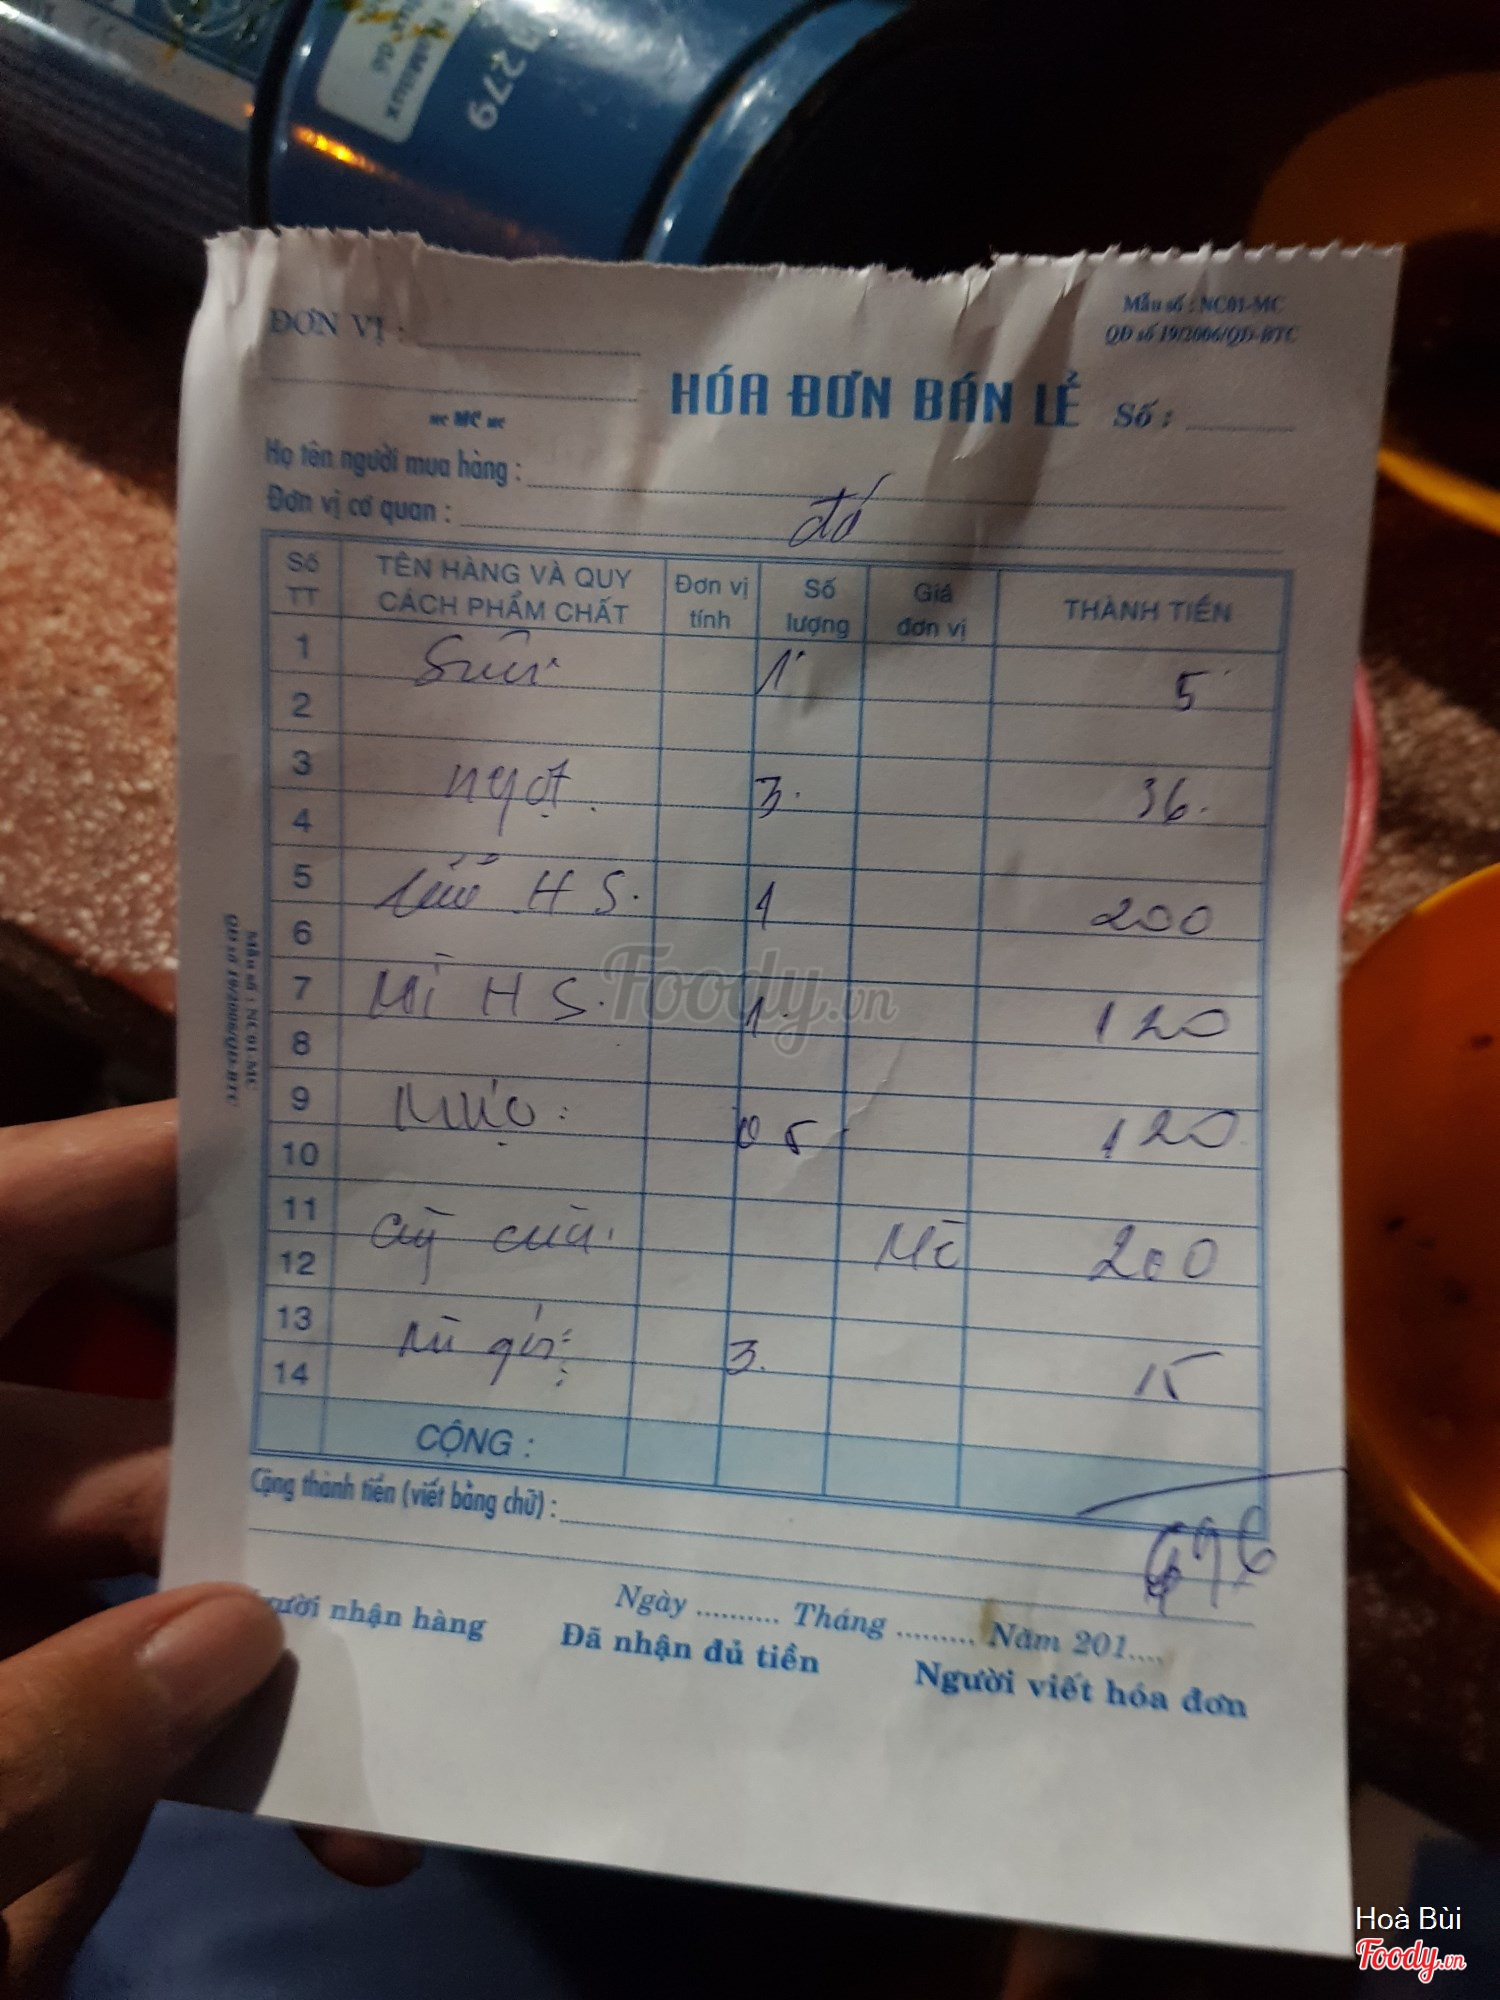 279
ĐƠN VỊ :
Mẫu số : NC01-MC
QĐ số 19/2006/QĐ-BTC
MC MC MC
HÓA ĐƠN BÁN LẺ Số :
Họ tên người mua hàng :
Đơn vị cơ quan :
đá
Số TT TÊN HÀNG VÀ QUY CÁCH PHẨM CHẤT Đơn vị tính Số lượng Giá đơn vị THÀNH TIỀN
1 1 5
2
3 ngọt 3 36
4
5 Lẩu H S. 1 200
6
7 Mì H S. 1 120
8
9 Mực 05 120
10
11 200
12
13 3 15
14
CỘNG :
696
Cộng thành tiền (viết bằng chữ) :
Ngày .......... Tháng .......... Năm 201....
Người nhận hàng Đã nhận đủ tiền Người viết hóa đơn
Mẫu số : NC01-MC
QĐ số 19/2006/QĐ-BTC
Foody.vn
Hoà Bùi
Foody.vn